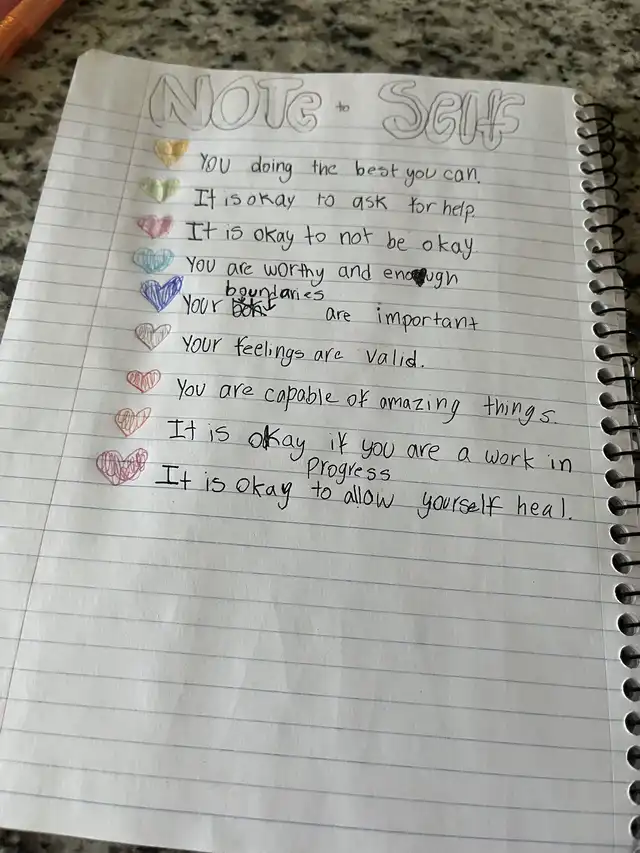 NOTE to SElf
YOU doing the best you can.
It is okay to ask for help.
It is okay to not be okay.
You are worthy and enough
boundaries
Your are important
Your feelings are valid.
You are capable of amazing things.
It is okay if you are a work in
Progress
It is okay to allow yourself heal.